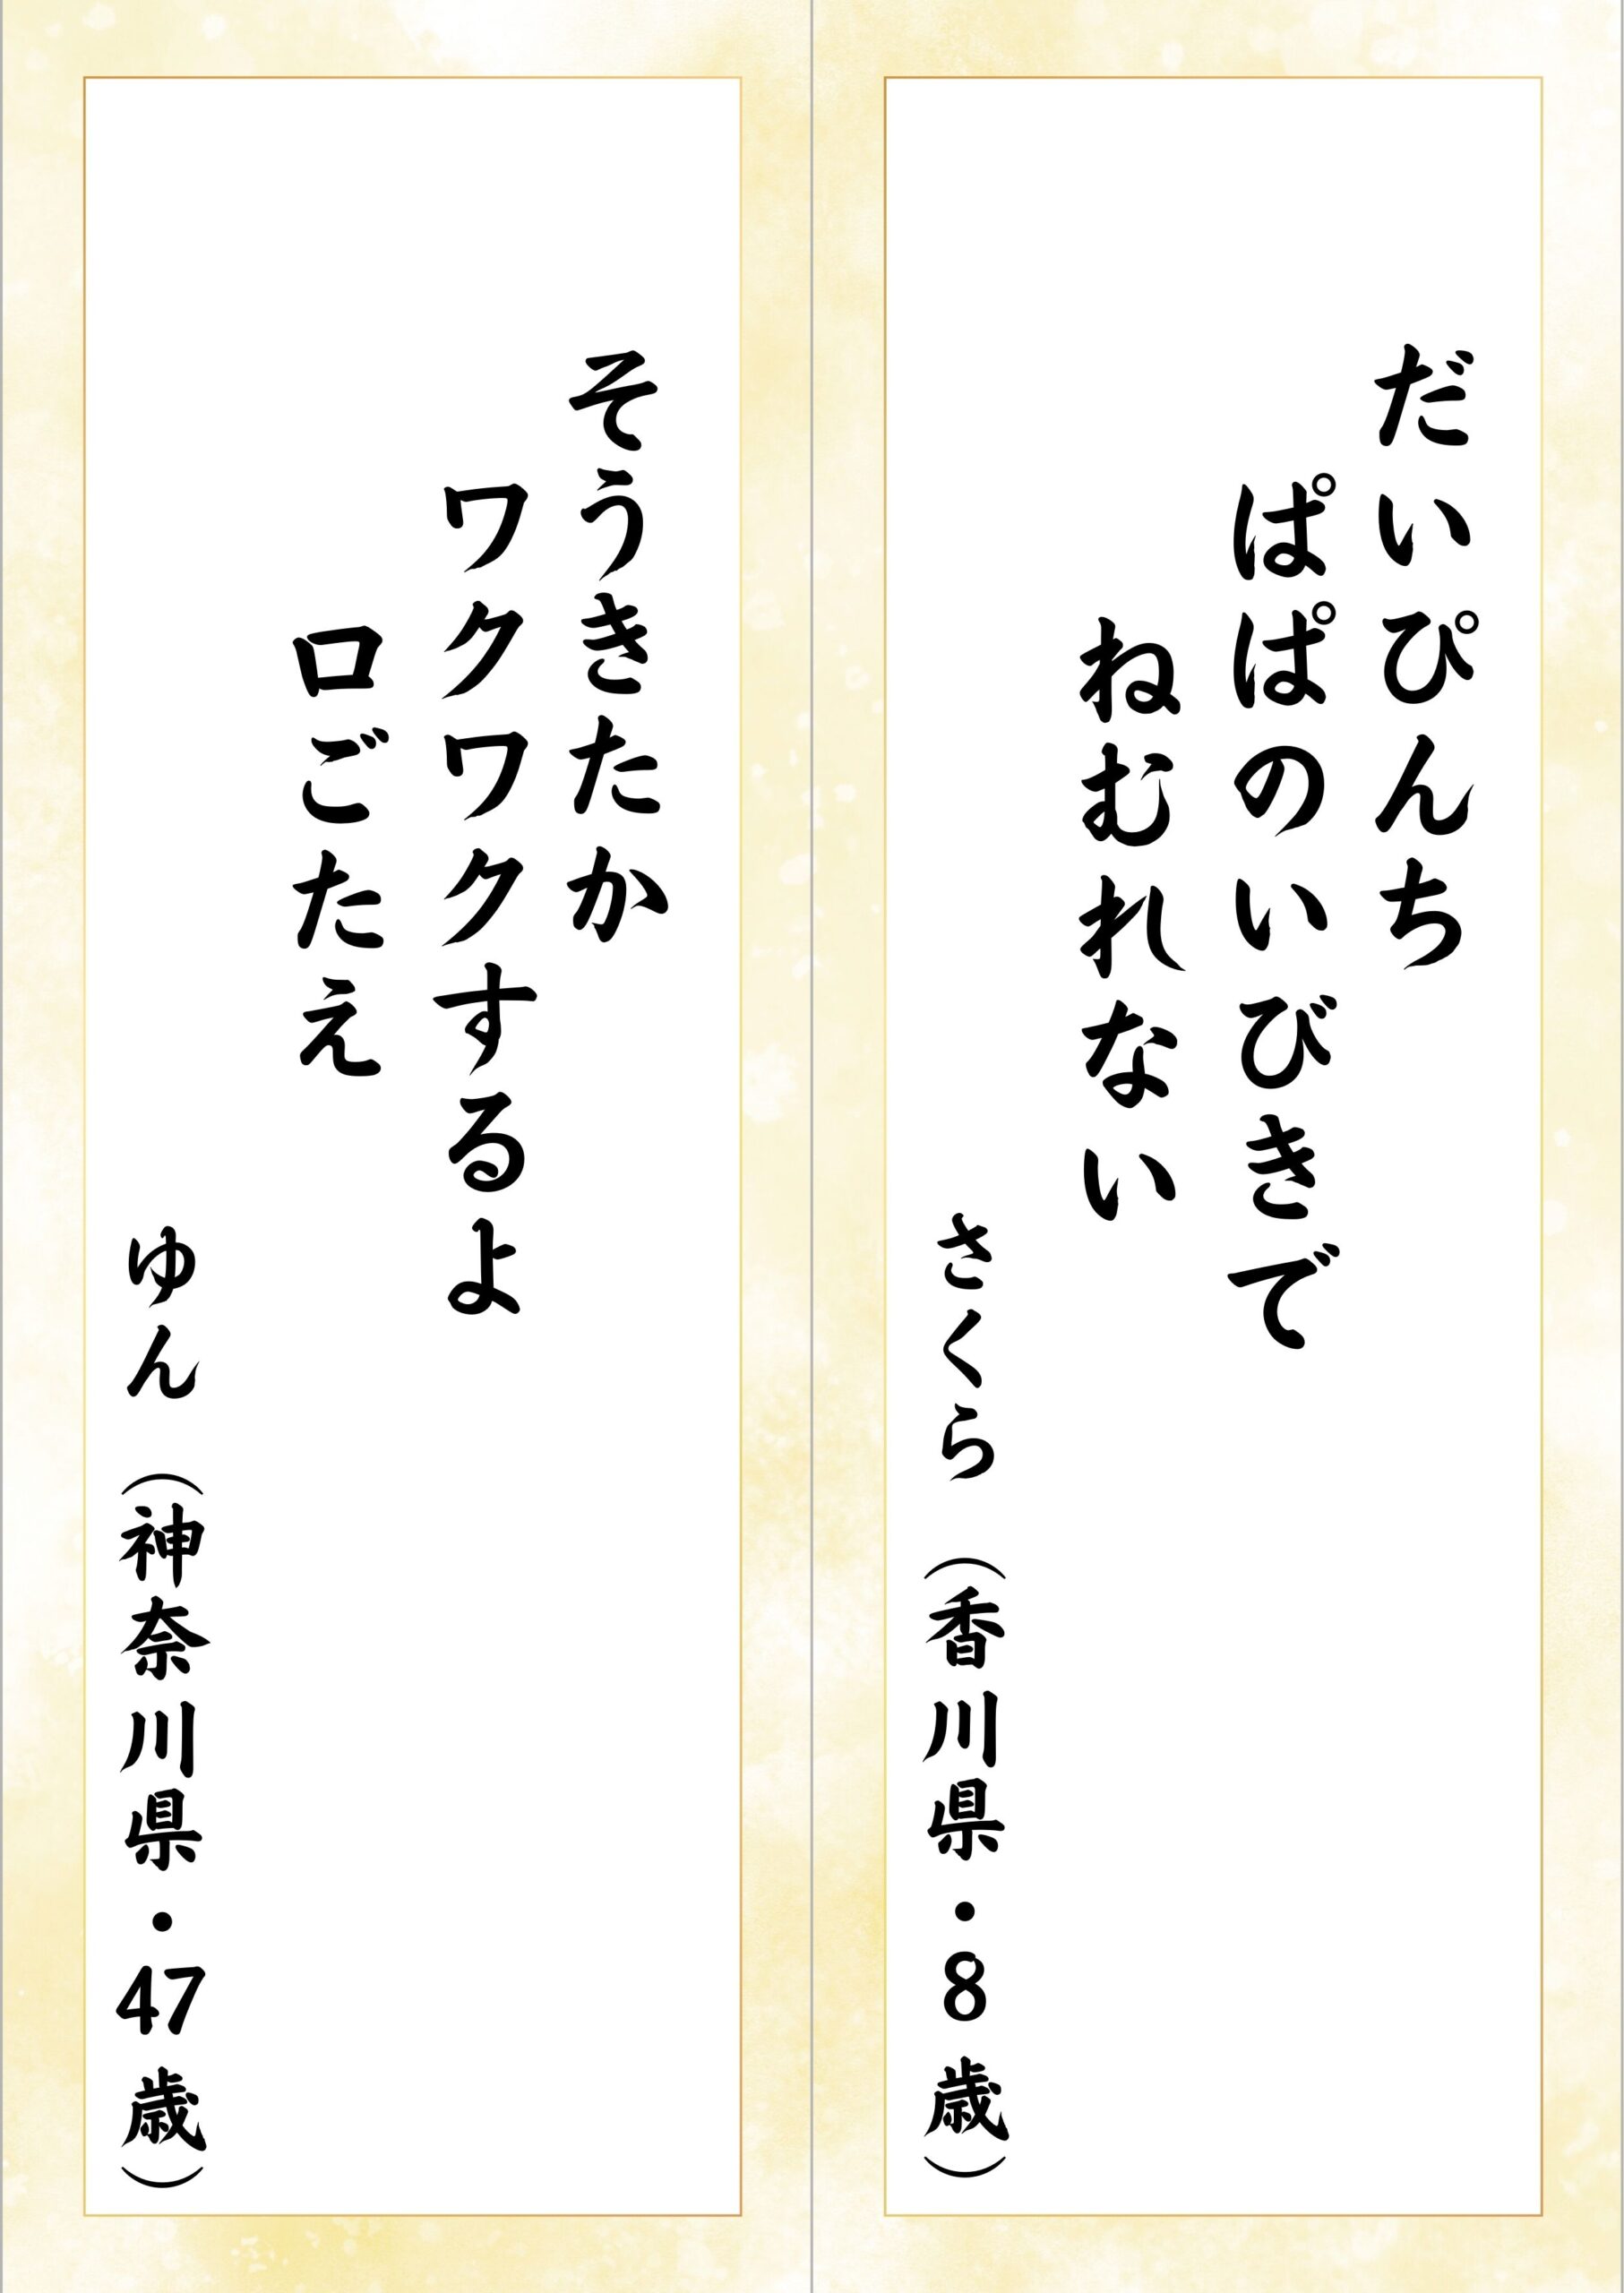 だいぴんち
ぱぱのいびきで
ねむれない
さくら（香川県・8歳）
そうきたか
ワクワクするよ
口ごたえ
ゆん（神奈川県・47歳）